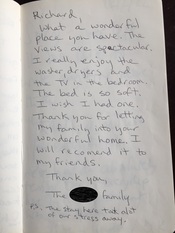 Richard,
What a wonderful
place you have. The
views are spectacular.
I really enjoy the
washer, dryers and
the TV in the bedroom.
The bed is so soft,
I wish I had one.
Thank you for letting
my family into your
wonderful home, I
will recomend it to
my friends.
Thank you,
The family
P.S. The stay here took alot
of our stress away.